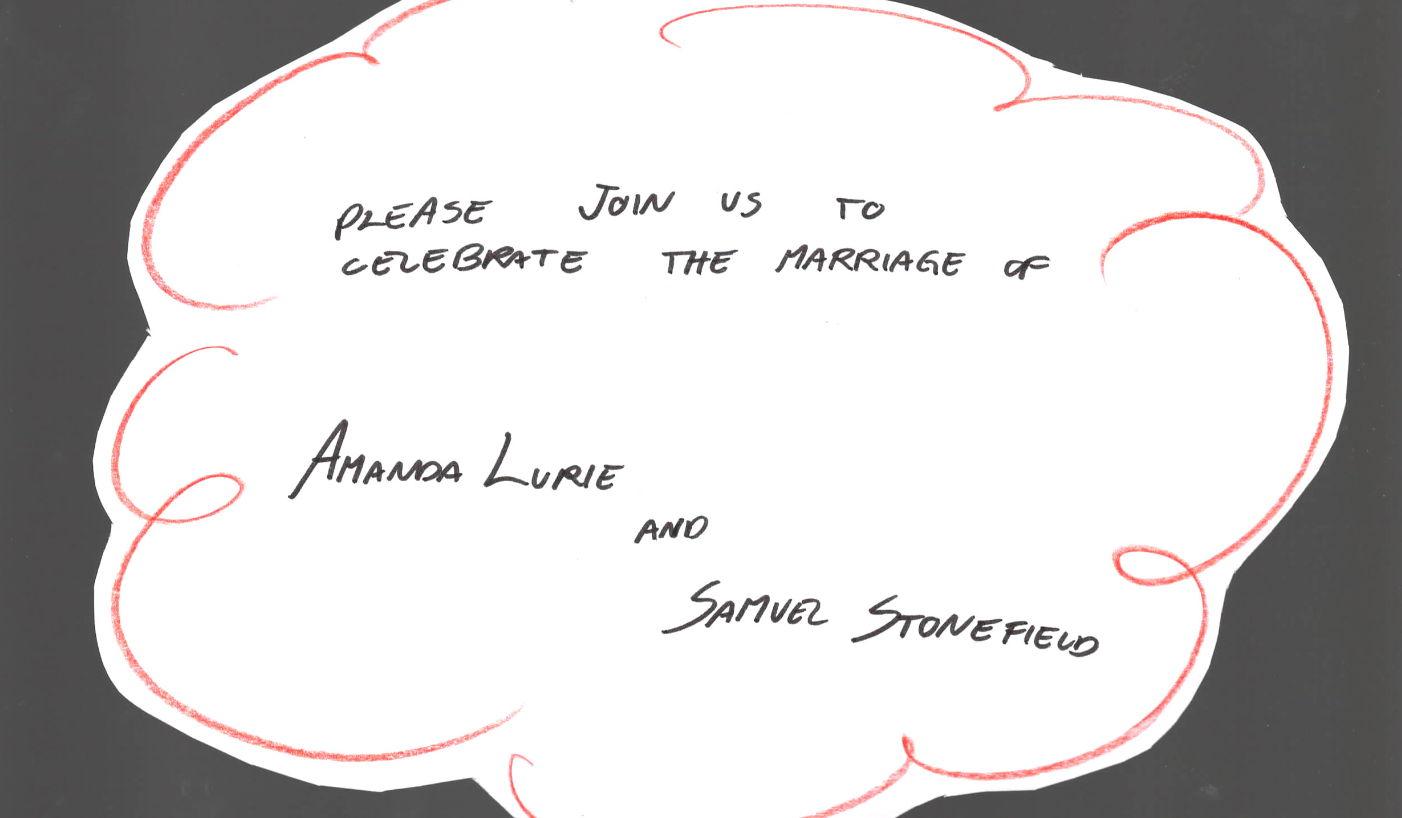 PLEASE JOIN US TO
CELEBRATE THE MARRIAGE OF
AMANDA LURIE
AND
SAMUEL STONEFIELD